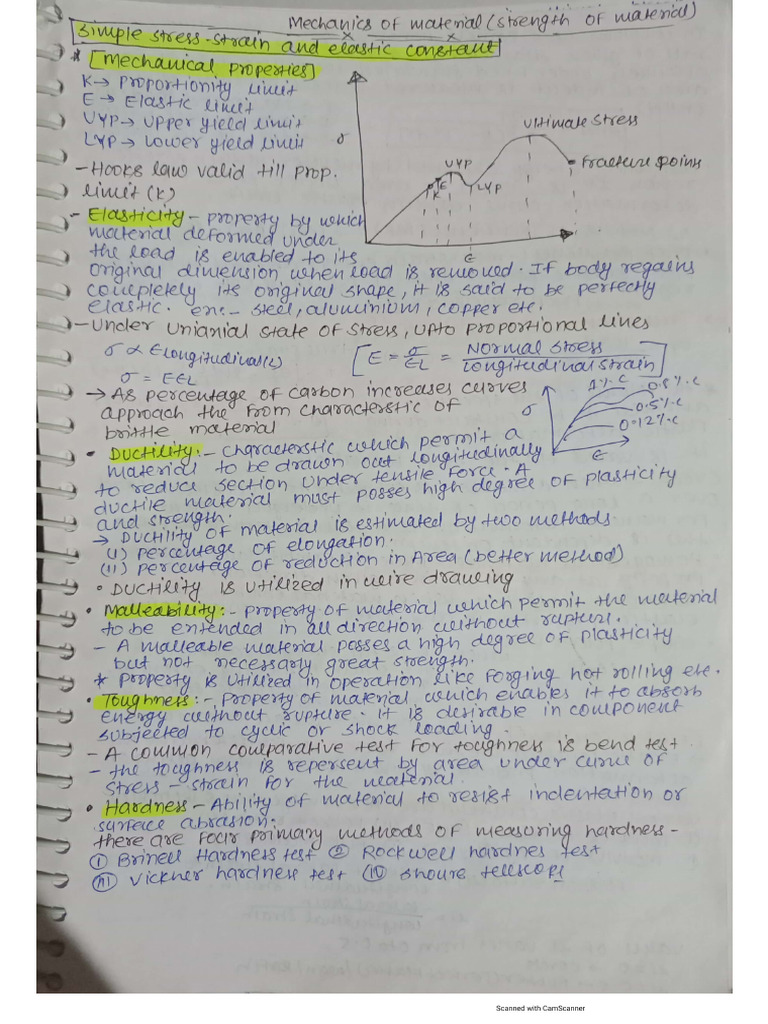 Mechanics of material (strength of material)
Simple stress-strain and elastic constant
* [Mechanical Properties]
K→ Proportionity limit
E→ Elastic limit
UYP→ Upper yield limit
LYP→ Lower yield limit
σ
UYP
E
K
LYP
Ultimate stress
Fracture points
ε
- Hooks law valid till prop.
limit (K)
- Elasticity - property by which
material deformed under
the load is enabled to its
original dimension when load is removed. If body regains
completely its original shape, it is said to be perfectly
elastic. en:- steel, aluminium, copper etc.
- Under Unianial state of stress, upto proportional lines
σ ∝ Elongitudinal(L)
[E = σ/EL = Normal stress / Longitudinal strain]
σ = EEL
→ As percentage of carbon increases curves
approach the from characterstic of
brittle material
σ
1%.C
0.8%.C
0.5%.C
0.12%.C
ε
• Ductility:- characterstic which permit a
material to be drawn out longitudinally
to reduce section under tensile force. A
ductile material must posses high degree of plasticity
and strength.
→ Ductility of material is estimated by two methods
(i) percentage of elongation.
(ii) percentage of reduction in Area (better method)
• Ductility is utilized in wire drawing
• Malleability:- property of material which permit the material
to be entended in all direction without rupture.
- A malleable material posses a high degree of plasticity
but not necessarly great strength.
* property is utilized in operation like forging hot rolling etc.
• Toughness:- property of material which enables it to absorb
energy without rupture. it is desirable in component
subjected to cyclic or shock loading.
- A common comparative test for toughness is bend test
- the toughness is repersent by area under curve of
stress - strain for the material.
• Hardness - Ability of material to resist indentation or
surface abrasion:
there are four primary methods of measuring hardness -
(i) Brinell Hardness test (ii) Rockwell hardnes test
(iii) Vickner hardness test (iv) Shoure telescope
Scanned with CamScanner